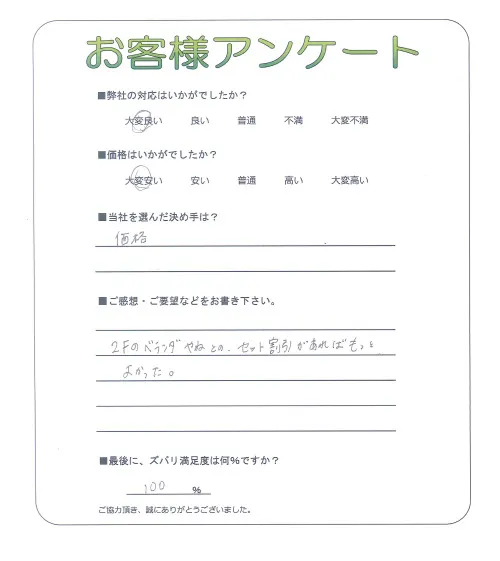 お客様アンケート
■弊社の対応はいかがでしたか？
大変良い 良い 普通 不満 大変不満
■価格はいかがでしたか？
大変安い 安い 普通 高い 大変高い
■当社を選んだ決め手は？
価格
■ご感想・ご要望などをお書き下さい。
2Fのベランダやねとの、セット割引があればもっと
よかった。
■最後に、ズバリ満足度は何％ですか？
100 ％
ご協力頂き、誠にありがとうございました。